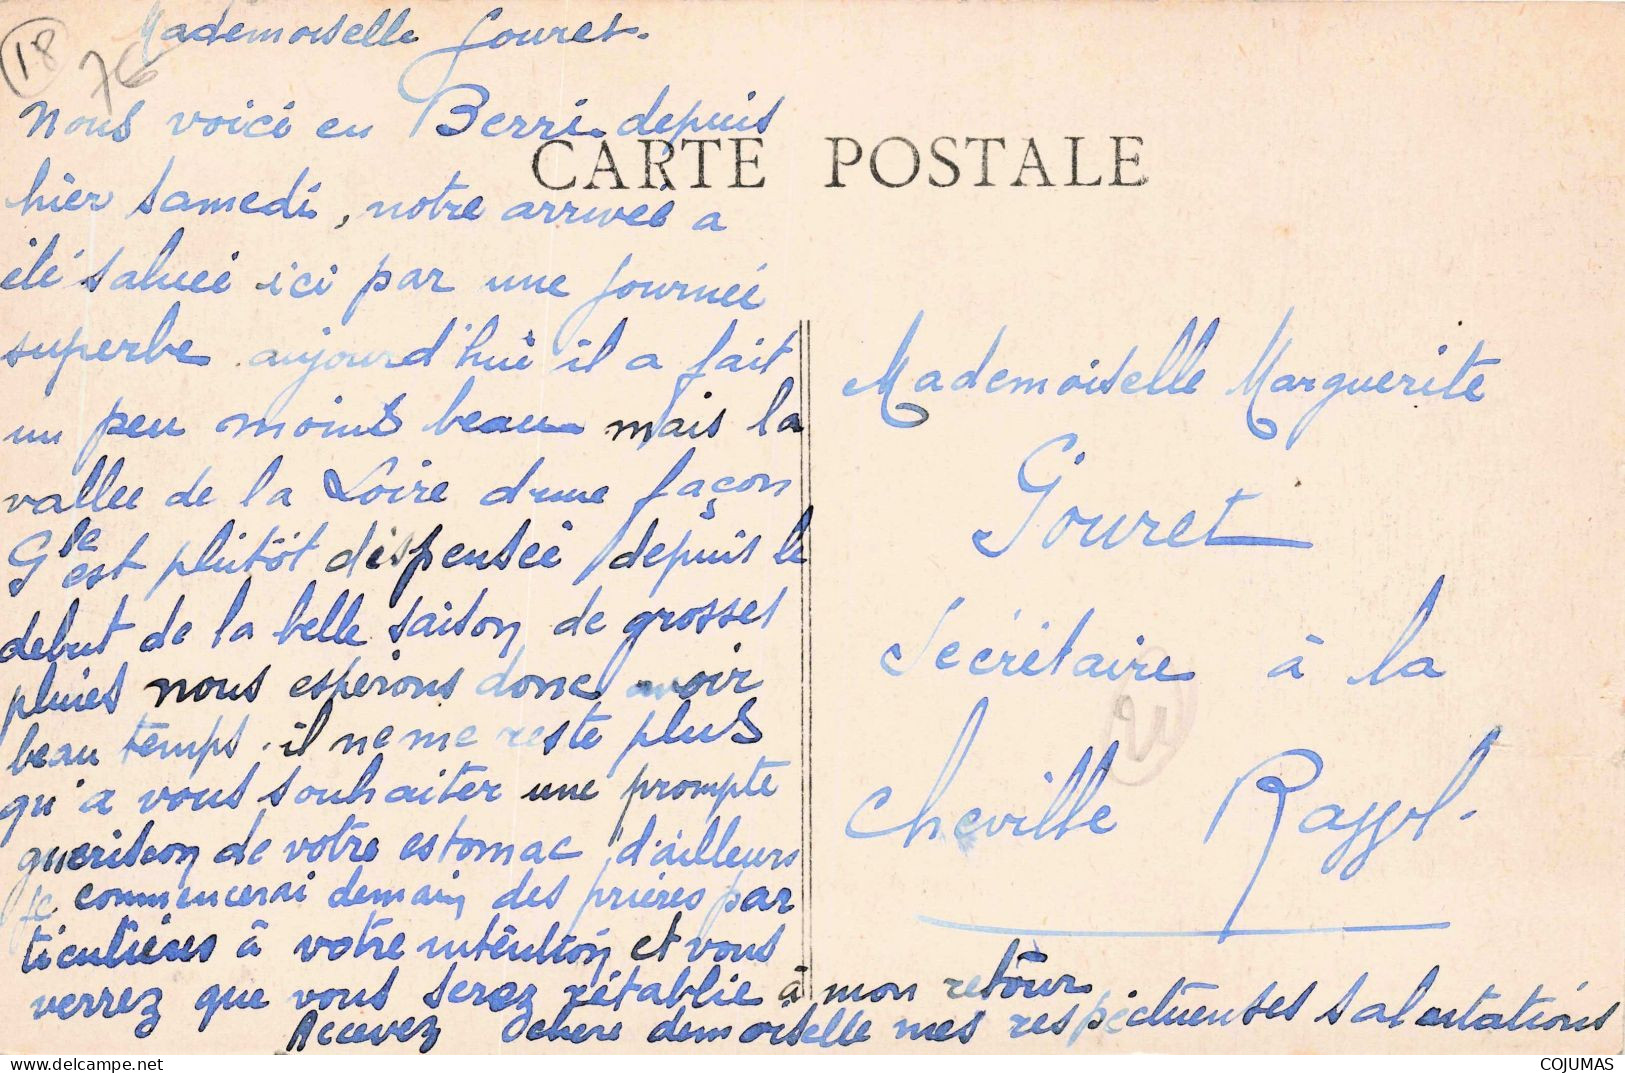 18
7€
Mademoiselle Gouret.
Nous voici en Berri depuis
CARTE POSTALE
hier samedi, notre arriveé a
été salueé ici par une journeé
superbe aujourd'hui il a fait
un peu moins beau mais la
valleé de la Loire d'une façon
Gle est plutôt dispenseé depuis le
debut de la belle saison de grosses
pluies nous esperons donc avoir
beau temps. il ne me reste plus
qu'a vous souhaiter une prompte
guerison de votre estomac, d'ailleurs
je commencerai demain des prières par
ticulières à votre intention et vous
verrez que vous serez rétablie à mon retour
Accevez chere demoiselle mes respectueuses salutations
Mademoiselle Marguerite
Gouret
Secrétaire à la
Cheville
COJUMAS
delcampe.net